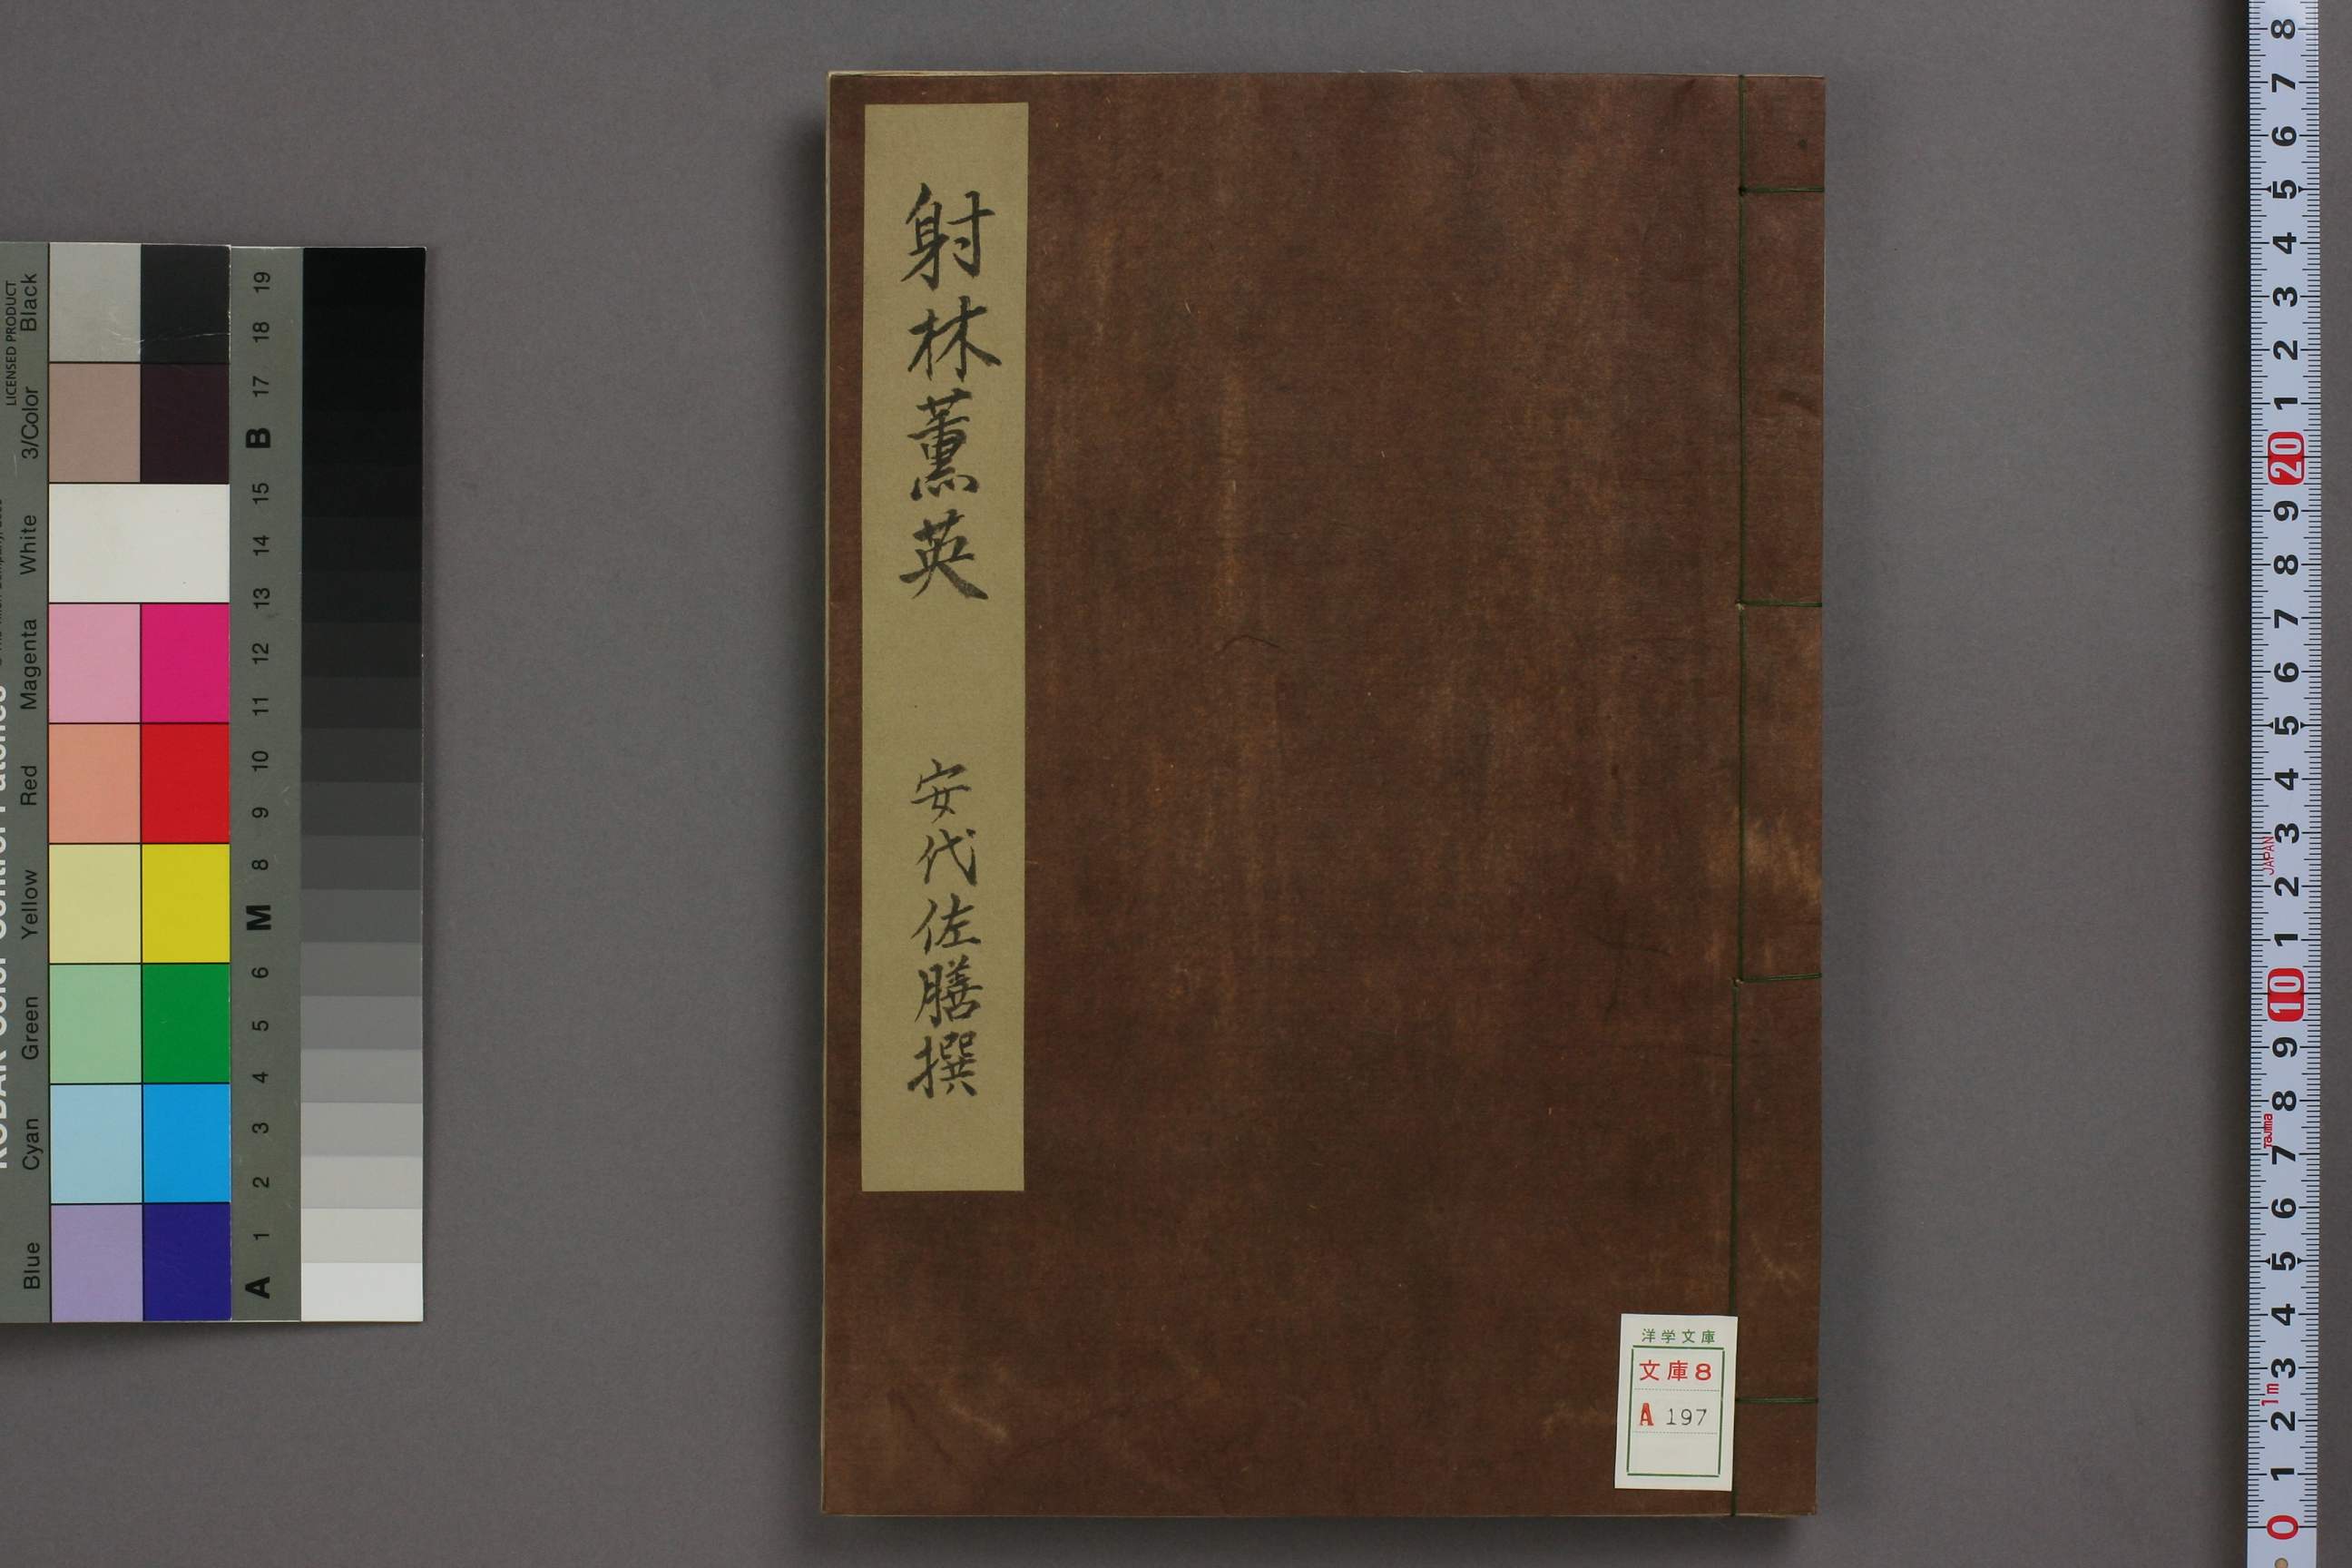 射林薫英 安代佐膳撰
洋学文庫
文庫8
A 197
LICENSED PRODUCT
Black
3/Color
White
Magenta
Red
Yellow
Green
Cyan
Blue
19
18
17
B
15
14
13
12
11
10
9
8
M
6
5
4
3
2
1
A
8
7
6
5
4
3
2
1
20
9
8
7
6
5
4
3
JAPAN
2
1
10
9
8
Tajima
7
6
5
4
3
1m
2
1
0